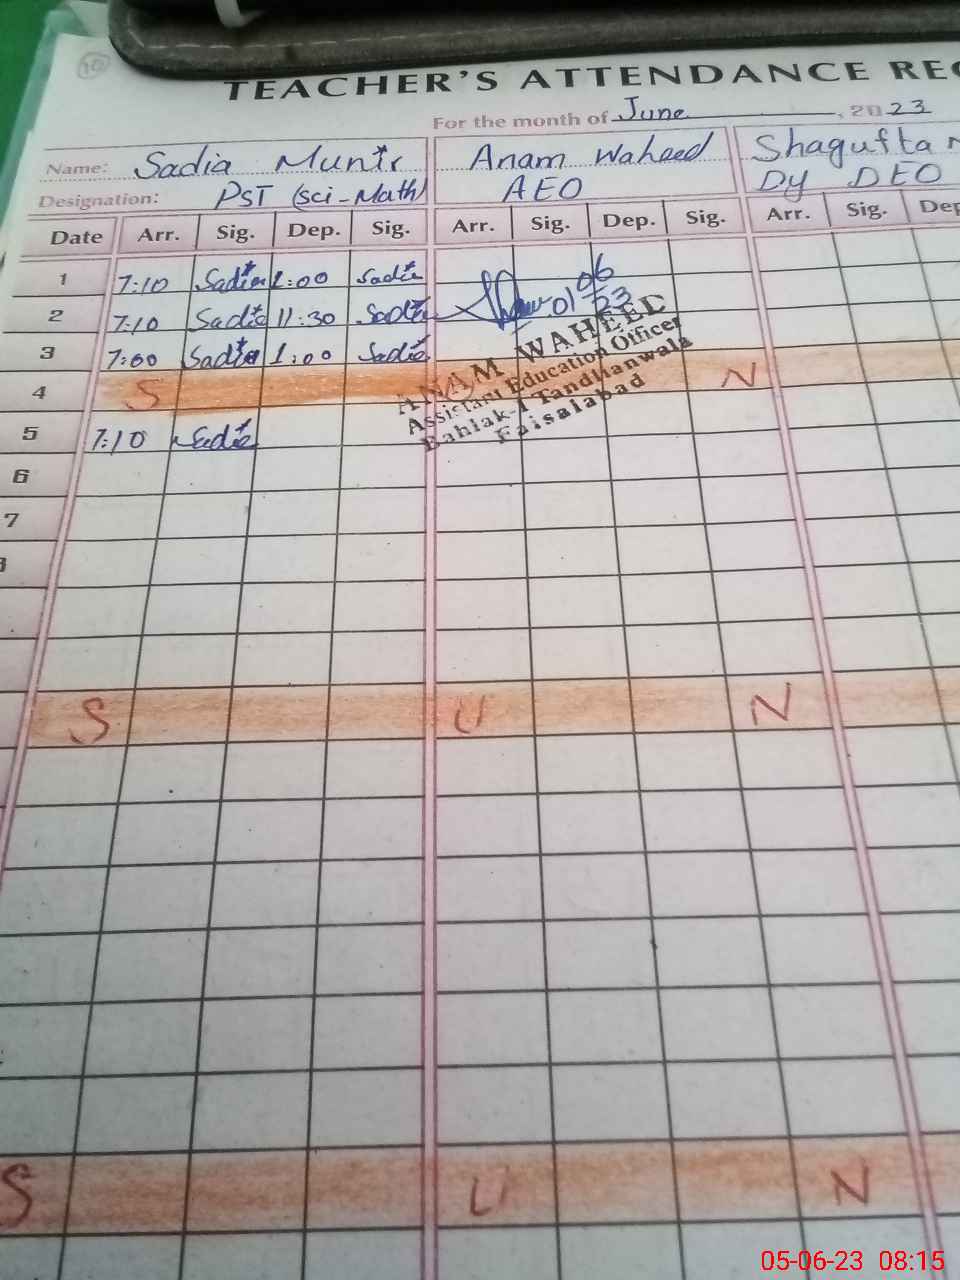 10
TEACHER'S ATTENDANCE REC
For the month of June, 2023
Name: Sadia Munir Anam Waheed Shagufta
Designation: PST (Sci-Math) AEO Dy DEO
Date Arr. Sig. Dep. Sig. Arr. Sig. Dep. Sig. Arr. Sig. Dep
1 7:10 Sadia 1:00 Sadia
2 7:10 Sadia 11:30 Sadia 01 06 23
3 7:00 Sadia 1:00 Sadia
ANAM WAHEED
Assistant Education Officer
Bahlak-I Tandlianwala
Faisalabad
4 S N
5 7:10 Sadia
6
7
S U N
S U N
05-06-23 08:15